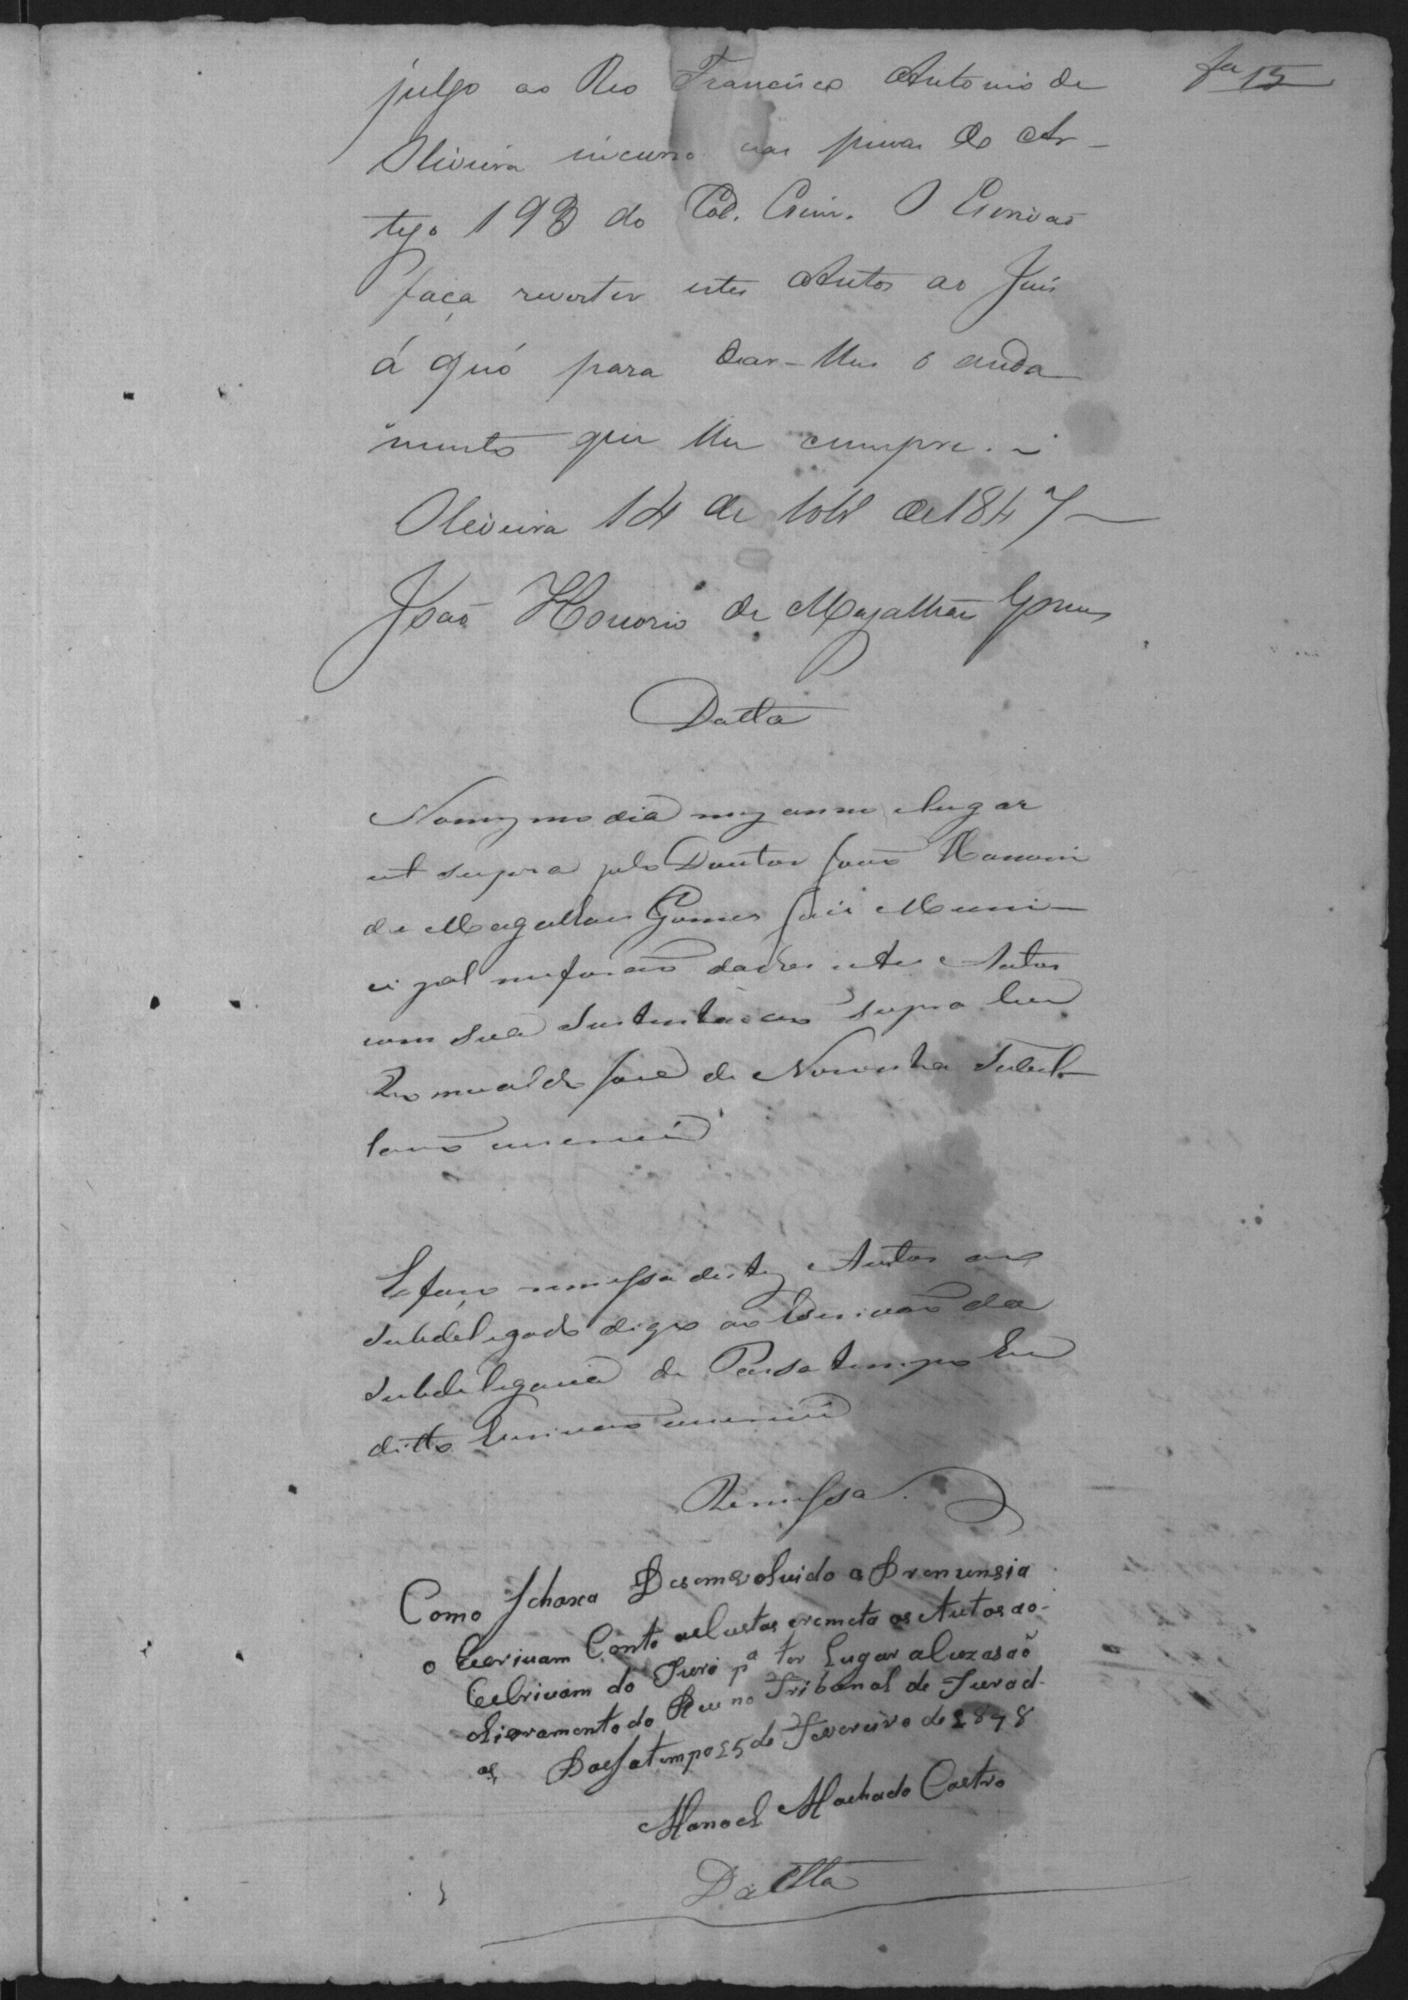 fu 15
julgo ao Reo Francisco Antonio de
Oliveira incurso nas penas do Ar-
tigo 193 do Cod. Crim. O Escrivaõ
faça reverter estes Autos ao Juis
á quó para dar-lhes o anda
mento que lhe cumpre.
Oliveira 14 de de 1847
Joaõ Honorio de Magalhães Gomes
Datta
No mesmo dia mez anno e lugar
ut supra pelo Doutor Joaõ Honorio
de Magalhaes Gomes Juis Muni-
cipal me foraõ dados estes Autos
com sua Sustentaçaõ supra Eu
Romualdo José de Noronha Tabel-
laõ escrevi
E faço remessa destes Autos ao
Subdelegado digo ao Escrivaõ da
Subdelegacia de Passatempo Eu
ditto Escrivaõ escrevi
Remessa
Como Schaxa Desemvoluido a Pronunsia
o Escrivam Conte as Custas e remeta os Autos ao
Escrivam do Juri pª ter Lugar a Cuzasaõ
e Livramento do Reu no Tribonal de Jurad-
os Passatempo 25 de Fevereiro de 1848
Manoel Machado Castro
Datta